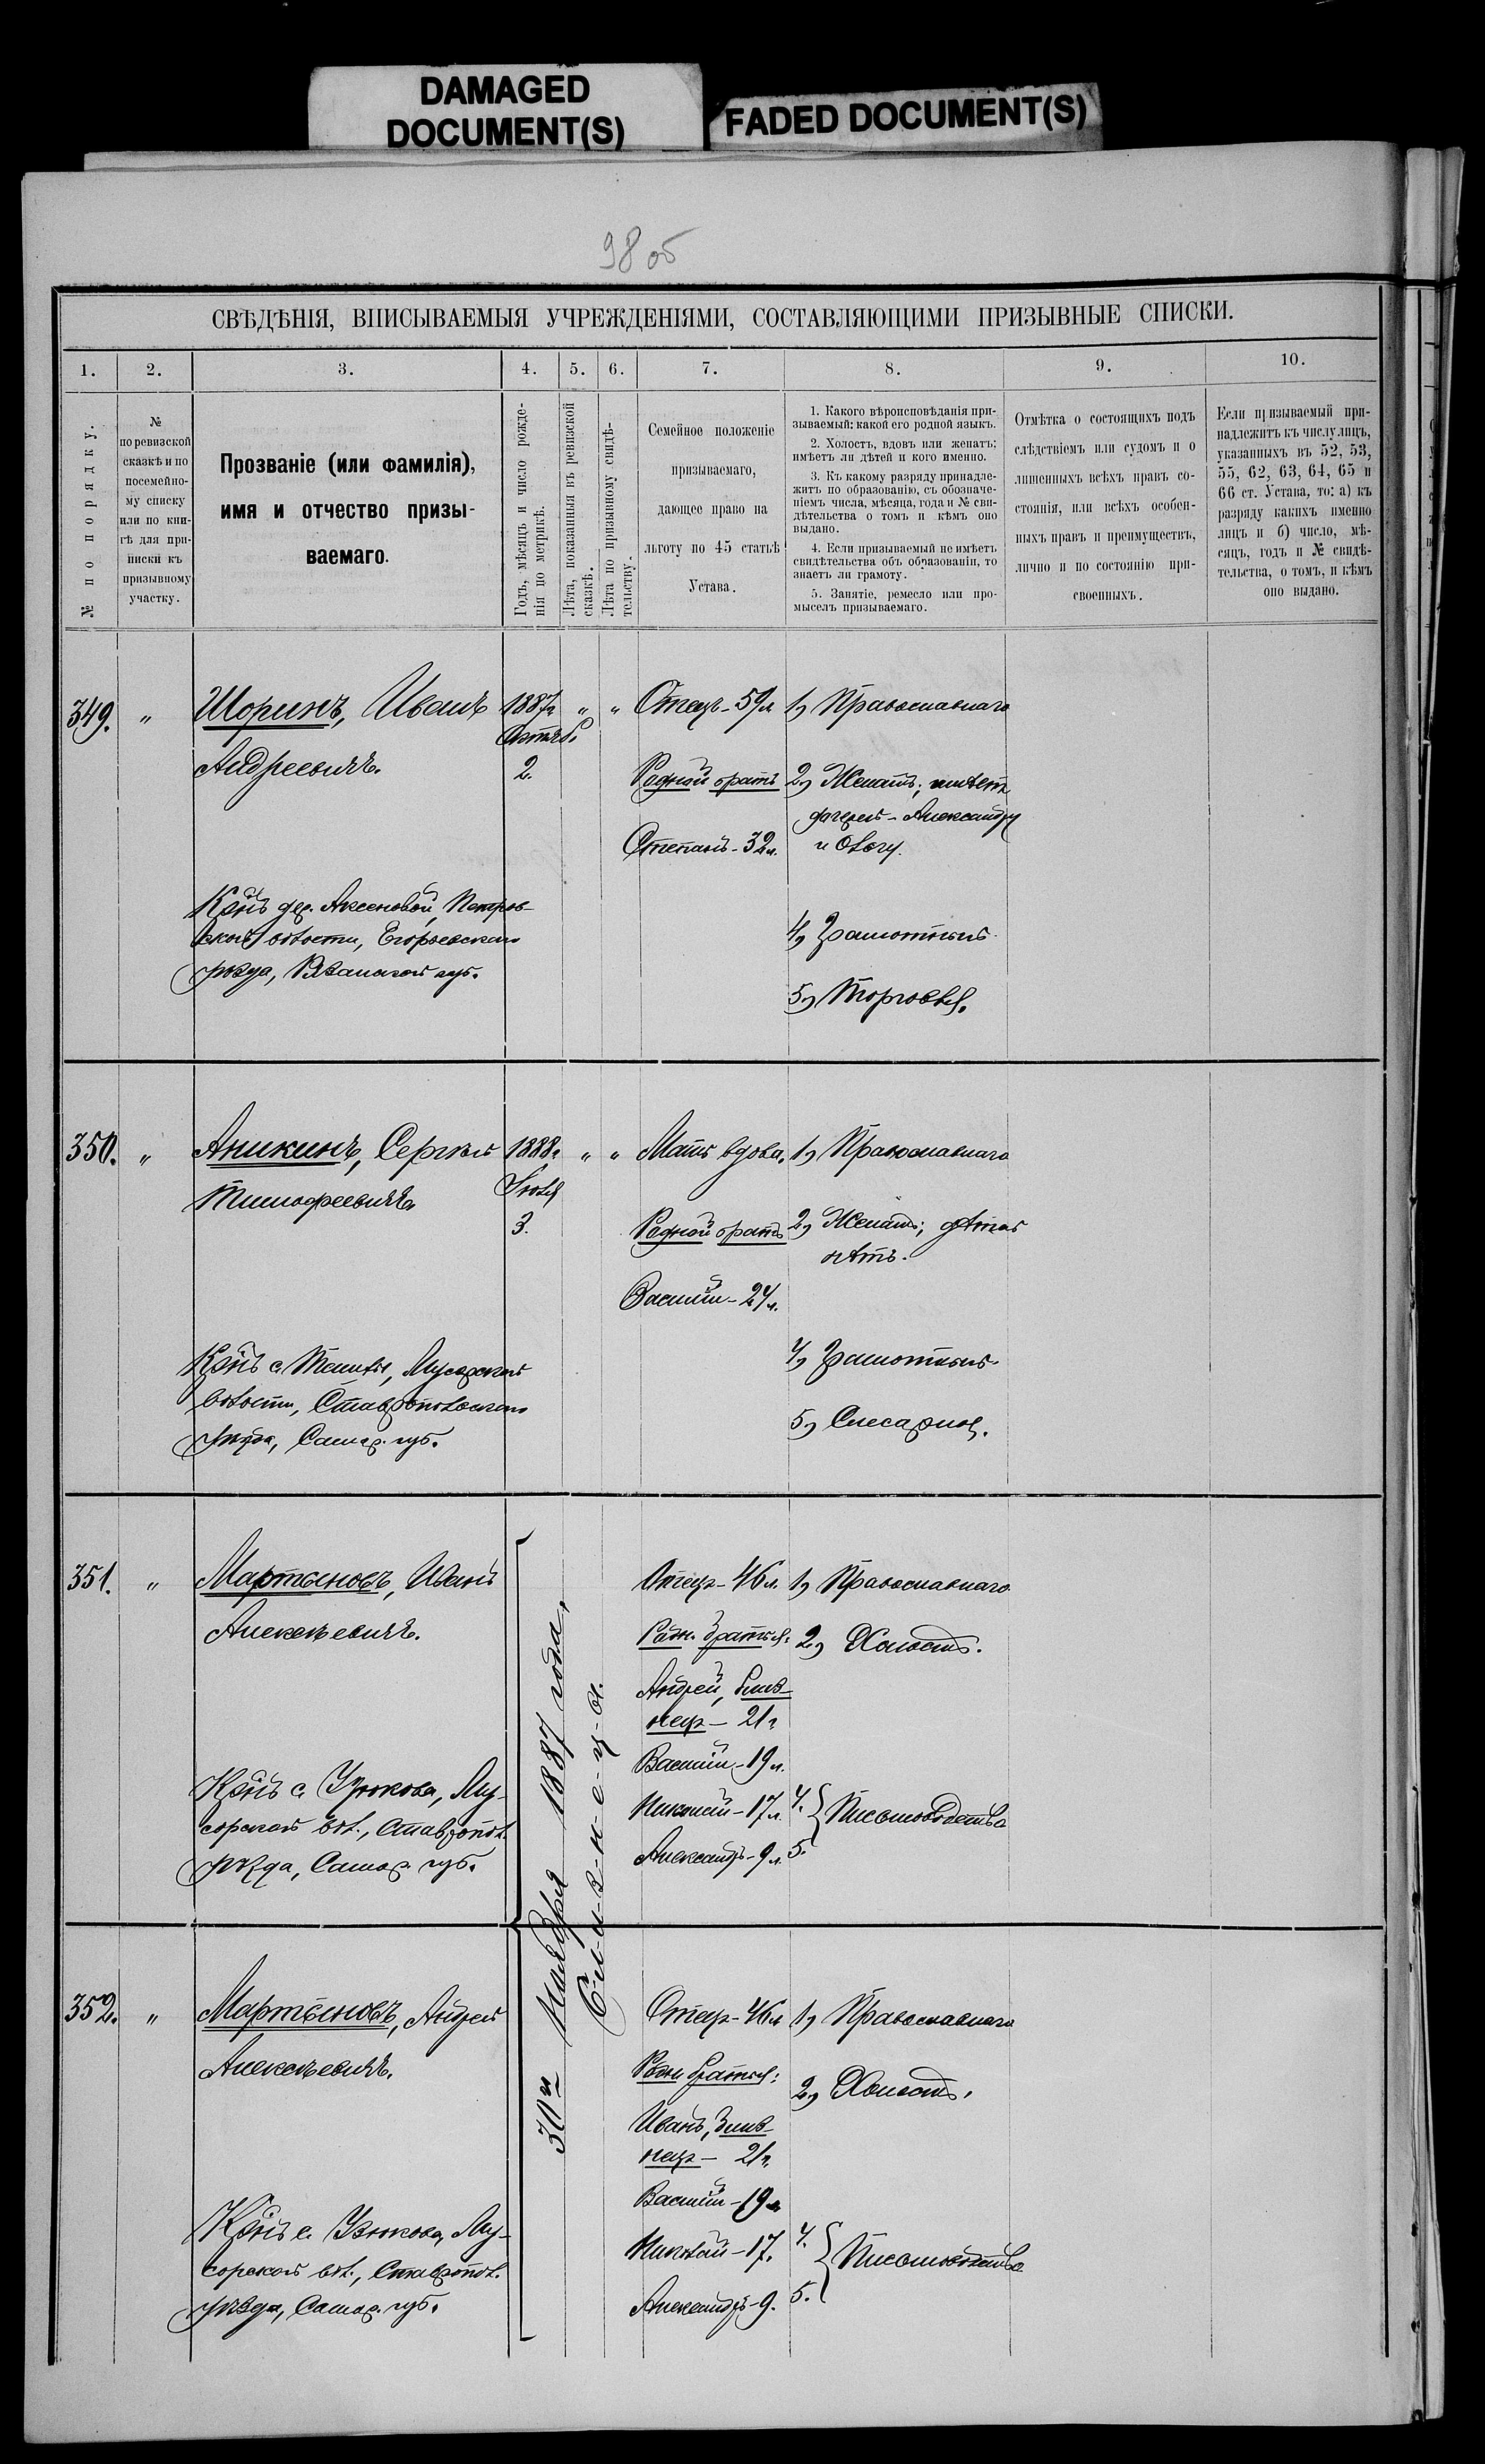 DAMAGED
DOCUMENT(S)
FADED DOCUMENT(S)
98 об
СВѢДѢНІЯ, ВПИСЫВАЕМЫЯ УЧРЕЖДЕНІЯМИ, СОСТАВЛЯЮЩИМИ ПРИЗЫВНЫЕ СПИСКИ.
1. 2. 3. 4. 5. 6. 7. 8. 9. 10.
№ по порядку.
№
по ревизской
сказкѣ и по
посемейно-
му списку
или по кни-
гѣ для при-
писки къ
призывному
участку.
Прозваніе (или фамилія),
имя и отчество призы-
ваемаго.
Годъ, мѣсяцъ и число рожде-
нія по метрикѣ.
Лѣта, показанныя въ ревизской
сказкѣ.
Лѣта по призывному свидѣ-
тельству.
Семейное положеніе
призываемаго,
дающее право на
льготу по 45 статьѣ
Устава.
1. Какого вѣроисповѣданія при-
зываемый; какой его родной языкъ.
2. Холостъ, вдовъ или женатъ;
имѣетъ ли дѣтей и кого именно.
3. Къ какому разряду принадле-
житъ по образованію, съ обозначе-
ніемъ числа, мѣсяца, года и № сви-
дѣтельства о томъ и кѣмъ оно
выдано.
4. Если призываемый не имѣетъ
свидѣтельства объ образованіи, то
знаетъ ли грамоту.
5. Занятіе, ремесло или про-
мыселъ призываемаго.
Отмѣтка о состоящихъ подъ
слѣдствіемъ или судомъ и о
лишенныхъ всѣхъ правъ со-
стоянія, или всѣхъ особен-
ныхъ правъ и преимуществъ,
лично и по состоянію при-
своенныхъ.
Если призываемый при-
надлежитъ къ числу лицъ,
указанныхъ въ 52, 53,
55, 62, 63, 64, 65 и
66 ст. Устава, то: а) къ
разряду какихъ именно
лицъ и б) число, мѣ-
сяцъ, годъ и № свидѣ-
тельства, о томъ, и кѣмъ
оно выдано.
349. „ Шоринъ, Иванъ
Андреевичъ.
Кр-нъ дер. Аксеновой, Петров-
ской волости, Егорьевскаго
уѣзда, Рязанской губ.
1887г.
Октяб.
2.
„ „
Отецъ - 59л.
Родной братъ
Степанъ - 32л.
1) Православнаго
2) Женатъ; имѣетъ
дочерей - Александру
и Ольгу.
4) Грамотный.
5) Торговля.
350. „ Аникинъ, Сергѣй
Тимофеевичъ
Кр-нъ с. Ташлы, Мусорской
волости, Ставропольскаго
уѣзда, Самар. губ.
1888г.
Іюля
3.
„ „
Мать вдова.
Родной братъ
Василій - 24л.
1) Православнаго
2) Женатъ; дѣтей
нѣтъ.
4) Грамотный.
5) Слесарной.
351. „ Мартыновъ, Иванъ
Алексѣевичъ.
Кр-нъ с. Узюкова, Му-
сорской вол., Ставропол.
уѣзда, Самар. губ.
30го Ноября 1887 года,
Б-л-и-з-н-е-ц-ы.
Отецъ - 46л.
Родн. братья:
Андрей, близ-
нецъ - 21г.
Василій - 19л.
Николай - 17л.
Александръ - 9л.
1) Православнаго
2) Холостъ.
4.
5.
Письмоводство
352. „ Мартыновъ, Андрей
Алексѣевичъ.
Кр-нъ с. Узюкова, Му-
сорской вол., Ставропол.
уѣзда, Самар. губ.
Отецъ - 46л.
Родн. братья:
Иванъ, близ-
нецъ - 21г.
Василій - 19л.
Николай - 17.
Александръ - 9.
1) Православнаго
2) Холостъ.
4.
5.
Письмоводство